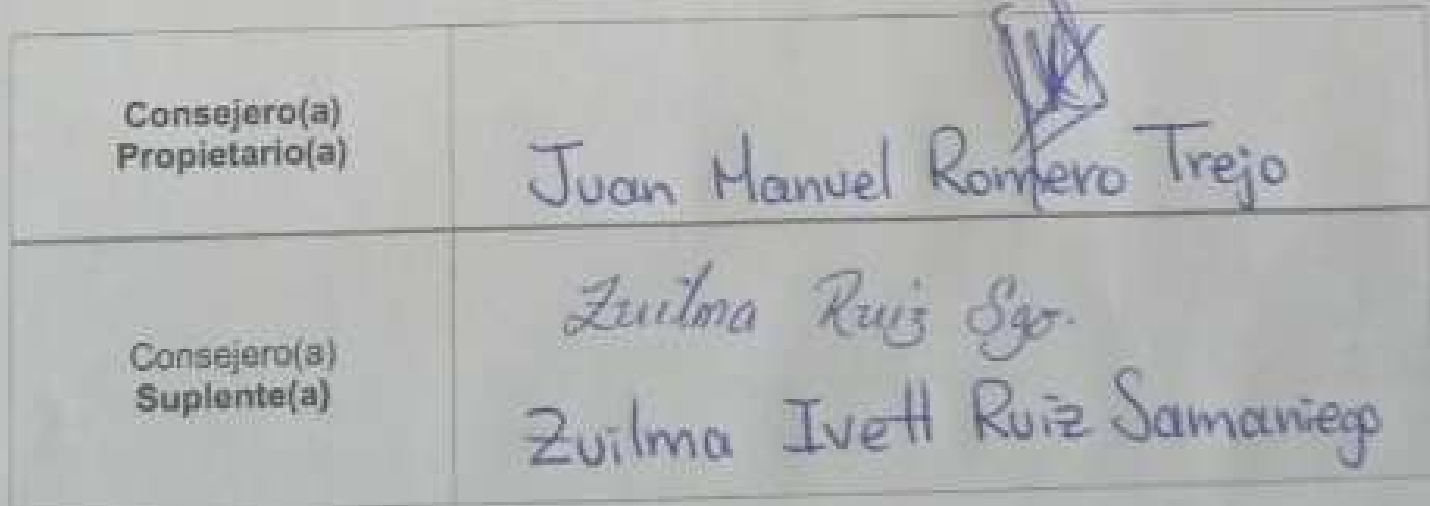 Consejero(a)
Propietario(a)
Juan Manuel Romero Trejo
Consejero(a)
Suplente(a)
Zuilma Ruiz Sgo.
Zuilma Ivett Ruiz Samaniego